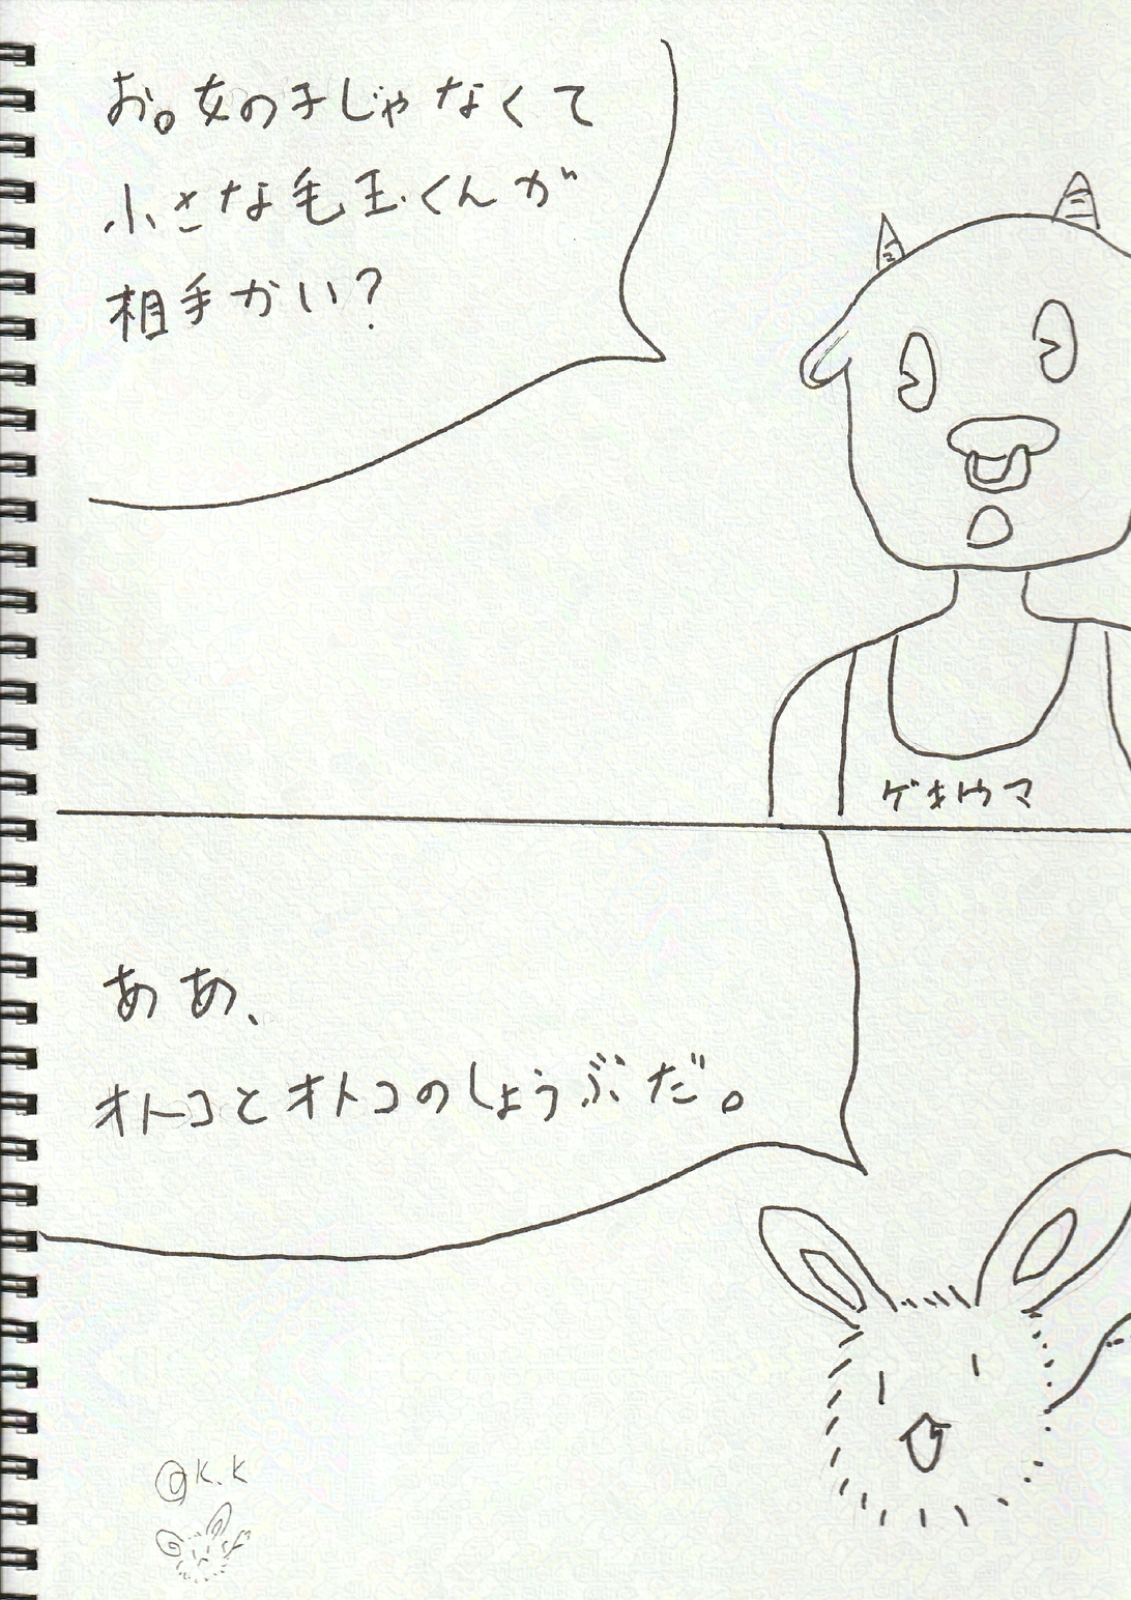 お。女の子じゃなくて
小さな毛玉くんが
相手かい？
ゲキトウマ
ああ、
オトコとオトコのしょうぶだ。
@K.K